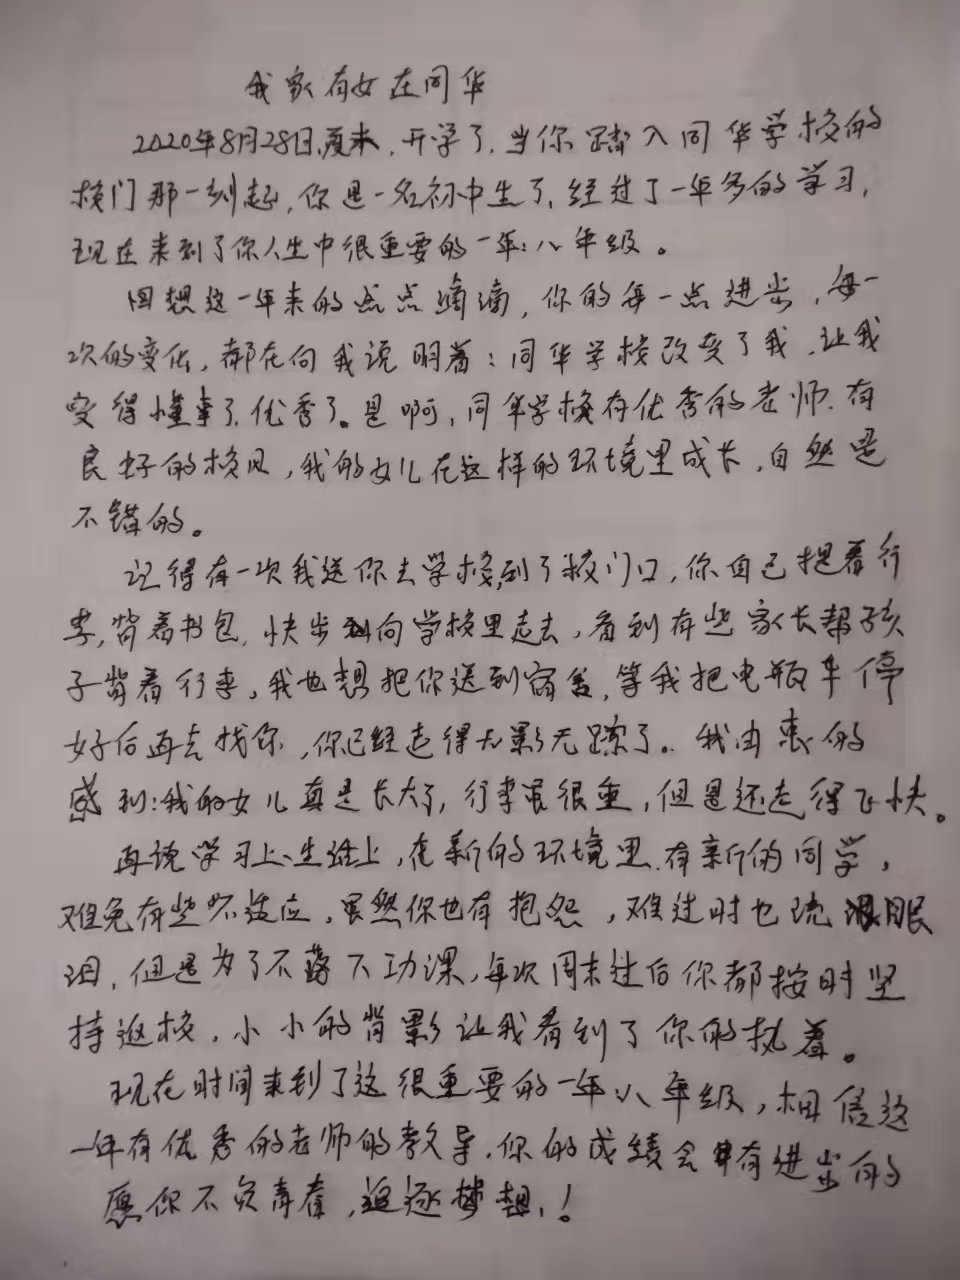 我家有女在同华
2020年8月28日,夏末,开学了,当你踏入同华学校的
校门那一刻起,你是一名初中生了,经过了一年多的学习,
现在来到了你人生中很重要的一年:八年级。
回想这一年来的点点滴滴,你的每一点进步,每一
次的变化,都在向我说明着:同华学校改变了我,让我
变得懂事了,优秀了。是啊,同华学校有优秀的老师,有
良好的校风,我的女儿在这样的环境里成长,自然是
不错的。
记得有一次我送你去学校,到了校门口,你自己提着行
李,背着书包,快步向学校里走去,看到有些家长帮孩
子背着行李,我也想把你送到宿舍,等我把电瓶车停
好后再去找你,你已经走得无影无踪了。我由衷的
感到:我的女儿真是长大了,行李虽很重,但是还走得飞快。
再说学习上、生活上,在新的环境里,有新的同学,
难免有些不适应,虽然你也有抱怨,难过时也流眼
泪,但是为了不落下功课,每次周末过后你都按时坚
持返校,小小的背影让我看到了你的执着。
现在时间来到了这很重要的一年八年级,相信这
一年有优秀的老师的教导,你的成绩会有进步的
愿你不负青春,追逐梦想,!